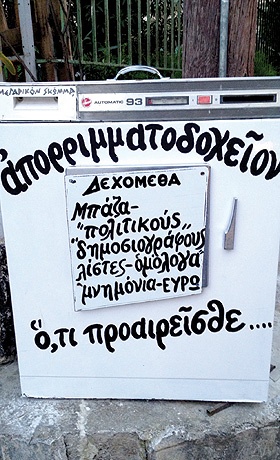 HOOVER AUTOMATIC 93
ἀπορριμματοδοχεῖον
ΔΕΧΟΜΕΘΑ
Μπάζα-
"πολιτικούς"
"δημοσιογράφους"
λίστες-ὁμόλογα
μνημόνια-ΕΥΡΩ
ὅ,τι προαιρεῖσθε....